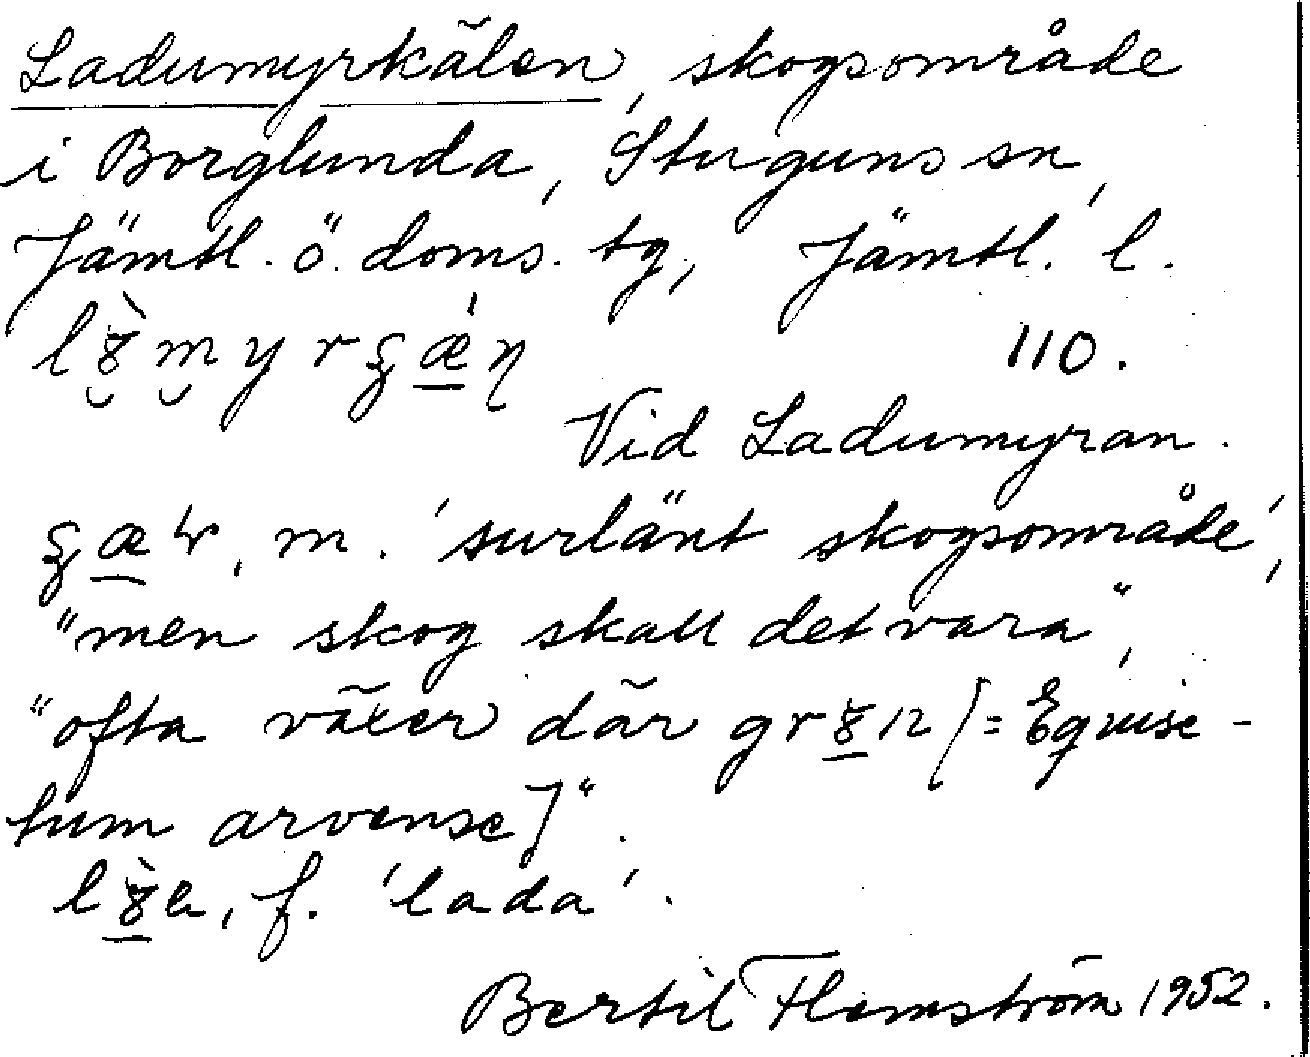 Ladumyrkälen, skogsområde
i Borglunda, Stuguns sn,
Jämtl. ö. doms. tg, Jämtl. l.
110.
Vid Ladumyran.
m. 'surlänt skogsområde',
"men skog skall det vara",
"ofta växer där [= Equise-
tum arvense]".
f. 'lada'.
Bertil Flemström 1952.